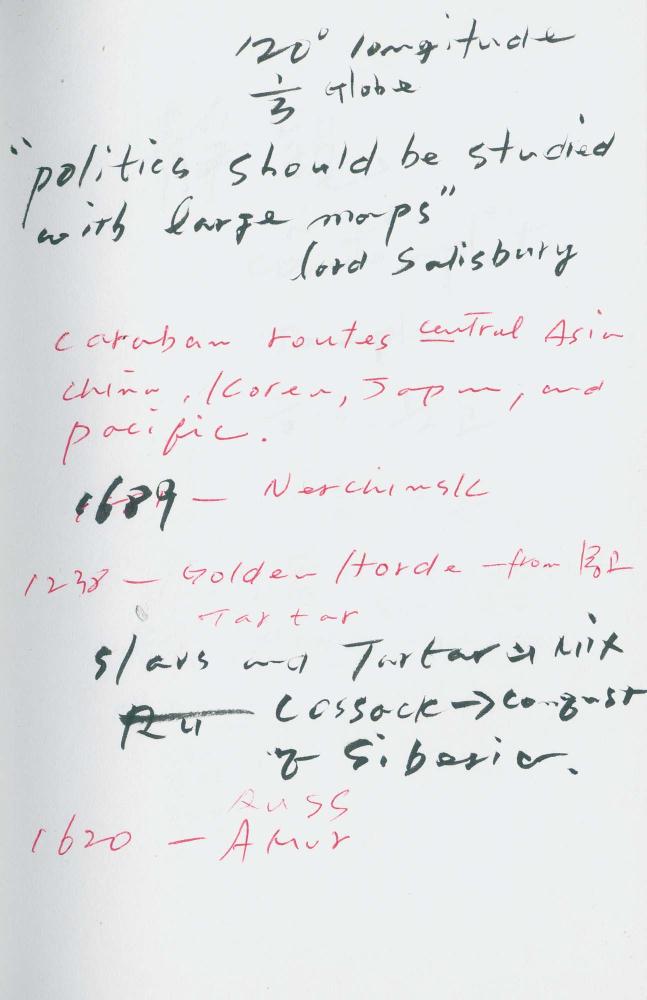 120° longitude
1/3 Globe
"politics should be studied
with large maps"
lord Salisbury
caraban routes central Asia
china, Korea, Japan, and
pacific.
1689 — Nerchinsk
1238 — Golden Horde — from 몽고
Tartar
Slavs and Tartar Mix
Ru Cossack → conquest
of Siberia.
Russ
1620 — Amur